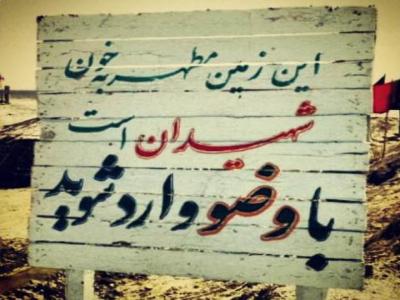 این زمین مطهر به خون
شهیدان است
با وضو وارد شوید